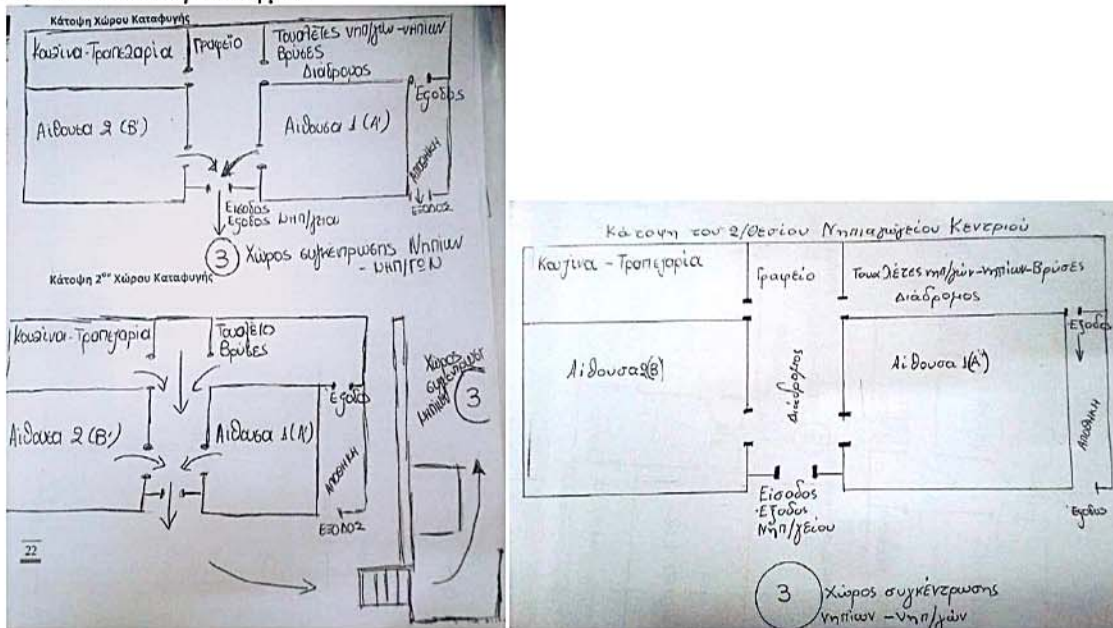 Κάτοψη Χώρου Καταφυγής
Κουζίνα-Τραπεζαρία
Γραφείο
Τουαλέτες νηπ/γών-νηπίων
Βρύσες
Διάδρομος
Έξοδος
Αίθουσα 2 (Β')
Αίθουσα 1 (Α')
ΑΠΟΘΗΚΗ
Είσοδος
Έξοδος Νηπ/γείου
ΕΞΟΔΟΣ
3 Χώρος συγκέντρωσης Νηπίων
- ΝΗΠ/ΓΩΝ
Κάτοψη 2ου Χώρου Καταφυγής
Κουζίνα-Τραπεζαρία
Τουαλέτες
Βρύσες
Χώρος
3
Αίθουσα 2 (Β')
Αίθουσα 1 (Α')
ΑΠΟΘΗΚΗ
ΕΞΟΔΟΣ
22
Κάτοψη του 2/θεσίου Νηπιαγωγείου Κεντριού
Κουζίνα - Τραπεζαρία
Γραφείο
Τουαλέτες νηπ/γών-νηπίων-Βρύσες
Διάδρομος
Αίθουσα 2(Β')
Διάδρομος
Αίθουσα 1(Α')
ΑΠΟΘΗΚΗ
Είσοδος
Έξοδος
Νηπ/γείου
3 Χώρος συγκέντρωσης
νηπίων - νηπ/γών